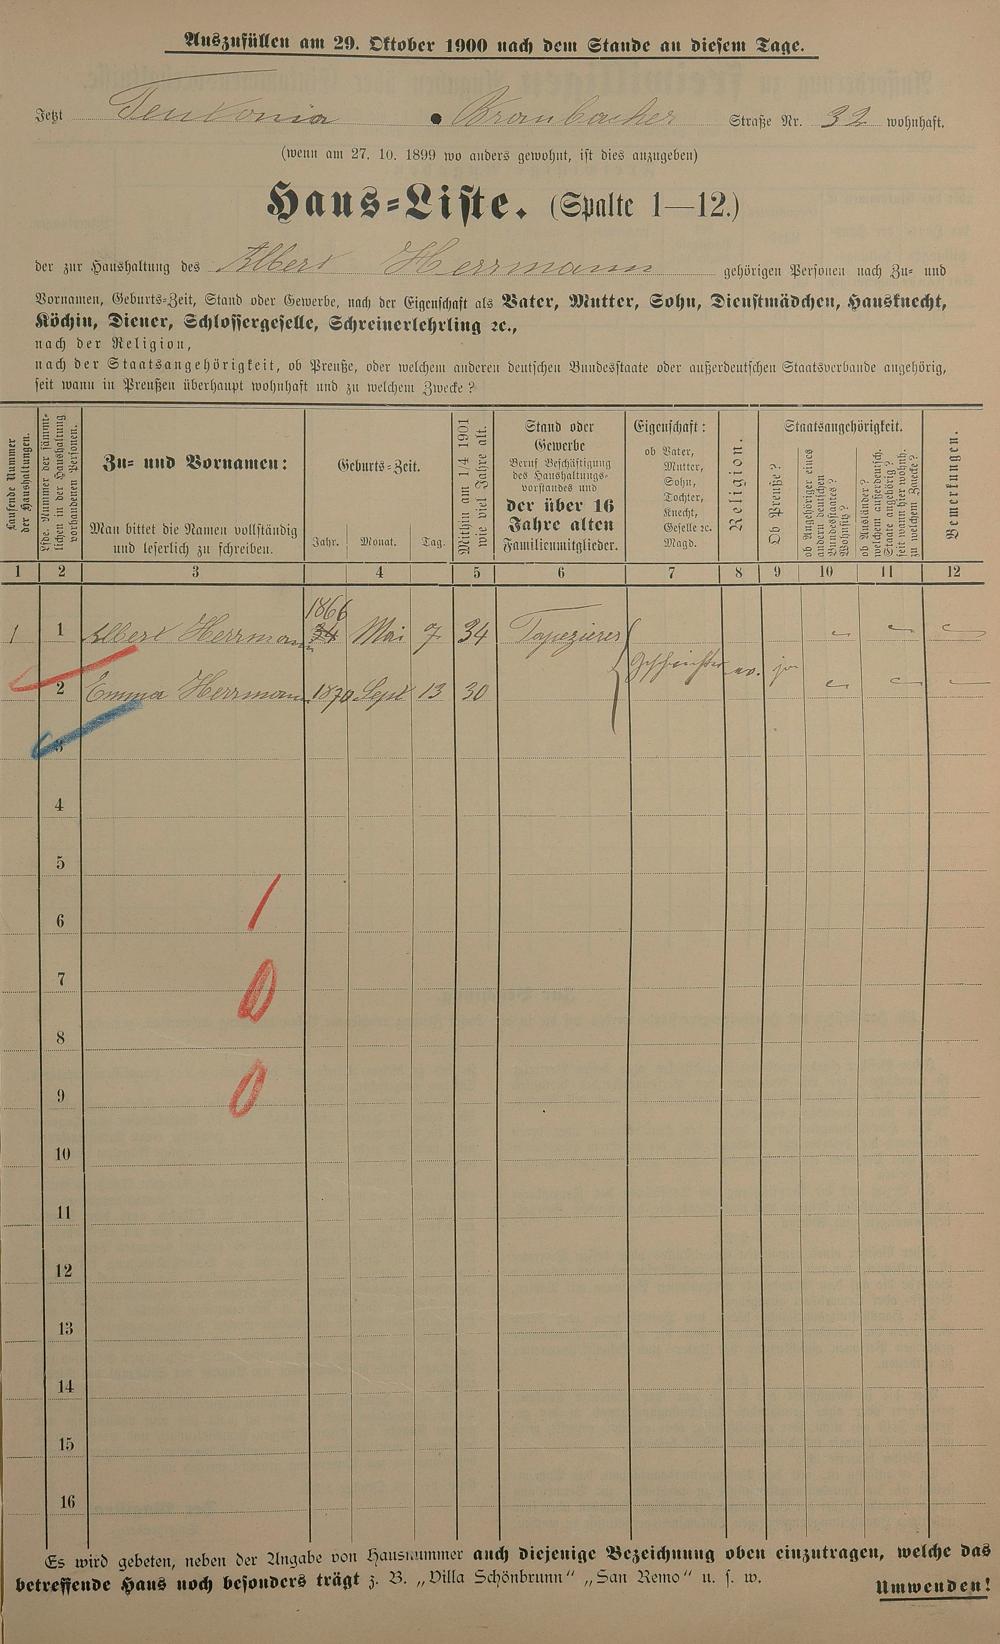 Auszufüllen am 29. Oktober 1900 nach dem Stande an diesem Tage.
Jetzt Teutonia Brambacher Straße Nr. 32 wohnhaft.
(wenn am 27. 10. 1899 wo anders gewohnt, ist dies anzugeben)
Haus-Liste. (Spalte 1—12.)
der zur Haushaltung des Albert Herrmann gehörigen Personen nach Zu- und
Vornamen, Geburts-Zeit, Stand oder Gewerbe, nach der Eigenschaft als Vater, Mutter, Sohn, Dienstmädchen, Hausknecht,
Köchin, Diener, Schlossergeselle, Schreinerlehrling ꝛc.,
nach der Religion,
nach der Staatsangehörigkeit, ob Preuße, oder welchem anderen deutschen Bundesstaate oder außerdeutschen Staatsverbande angehörig,
seit wann in Preußen überhaupt wohnhaft und zu welchem Zwecke?
Laufende Nummer
der Haushaltungen.
Lfde. Nummer der sämmt-
lichen in der Haushaltung
vorhandenen Personen.
Zu- und Vornamen:
Man bittet die Namen vollständig
und leserlich zu schreiben.
Geburts-Zeit.
Jahr. Monat. Tag.
Mithin am 1/4 1901
wie viel Jahre alt.
Stand oder
Gewerbe
Beruf Beschäftigung
des Haushaltungs-
vorstandes und
der über 16
Jahre alten
Familienmitglieder.
Eigenschaft:
ob Vater,
Mutter,
Sohn,
Tochter,
Knecht,
Geselle ꝛc.
Magd.
Religion.
Staatsangehörigkeit.
Ob Preuße?
ob Angehöriger eines
andern deutschen
Bundesstaates?
Wohnsitz?
ob Ausländer?
welchem außerdeutsch.
Staate angehörig?
seit wann hier wohnh.
zu welchem Zwecke?
Bemerkungen.
1 2 3 4 5 6 7 8 9 10 11 12
1866
1 1 Albert Herrmann 34 Mai 7 34 Tapezierer
ev. ja
2 Emma Herrmann 1870 Sept 13 30
3
4
5
6
7
8
9
10
11
12
13
14
15
16
Es wird gebeten, neben der Angabe von Hausnummer auch diejenige Bezeichnung oben einzutragen, welche das
betreffende Haus noch besonders trägt z. B. „Villa Schönbrunn“ „San Remo“ u. s. w.
Umwenden!